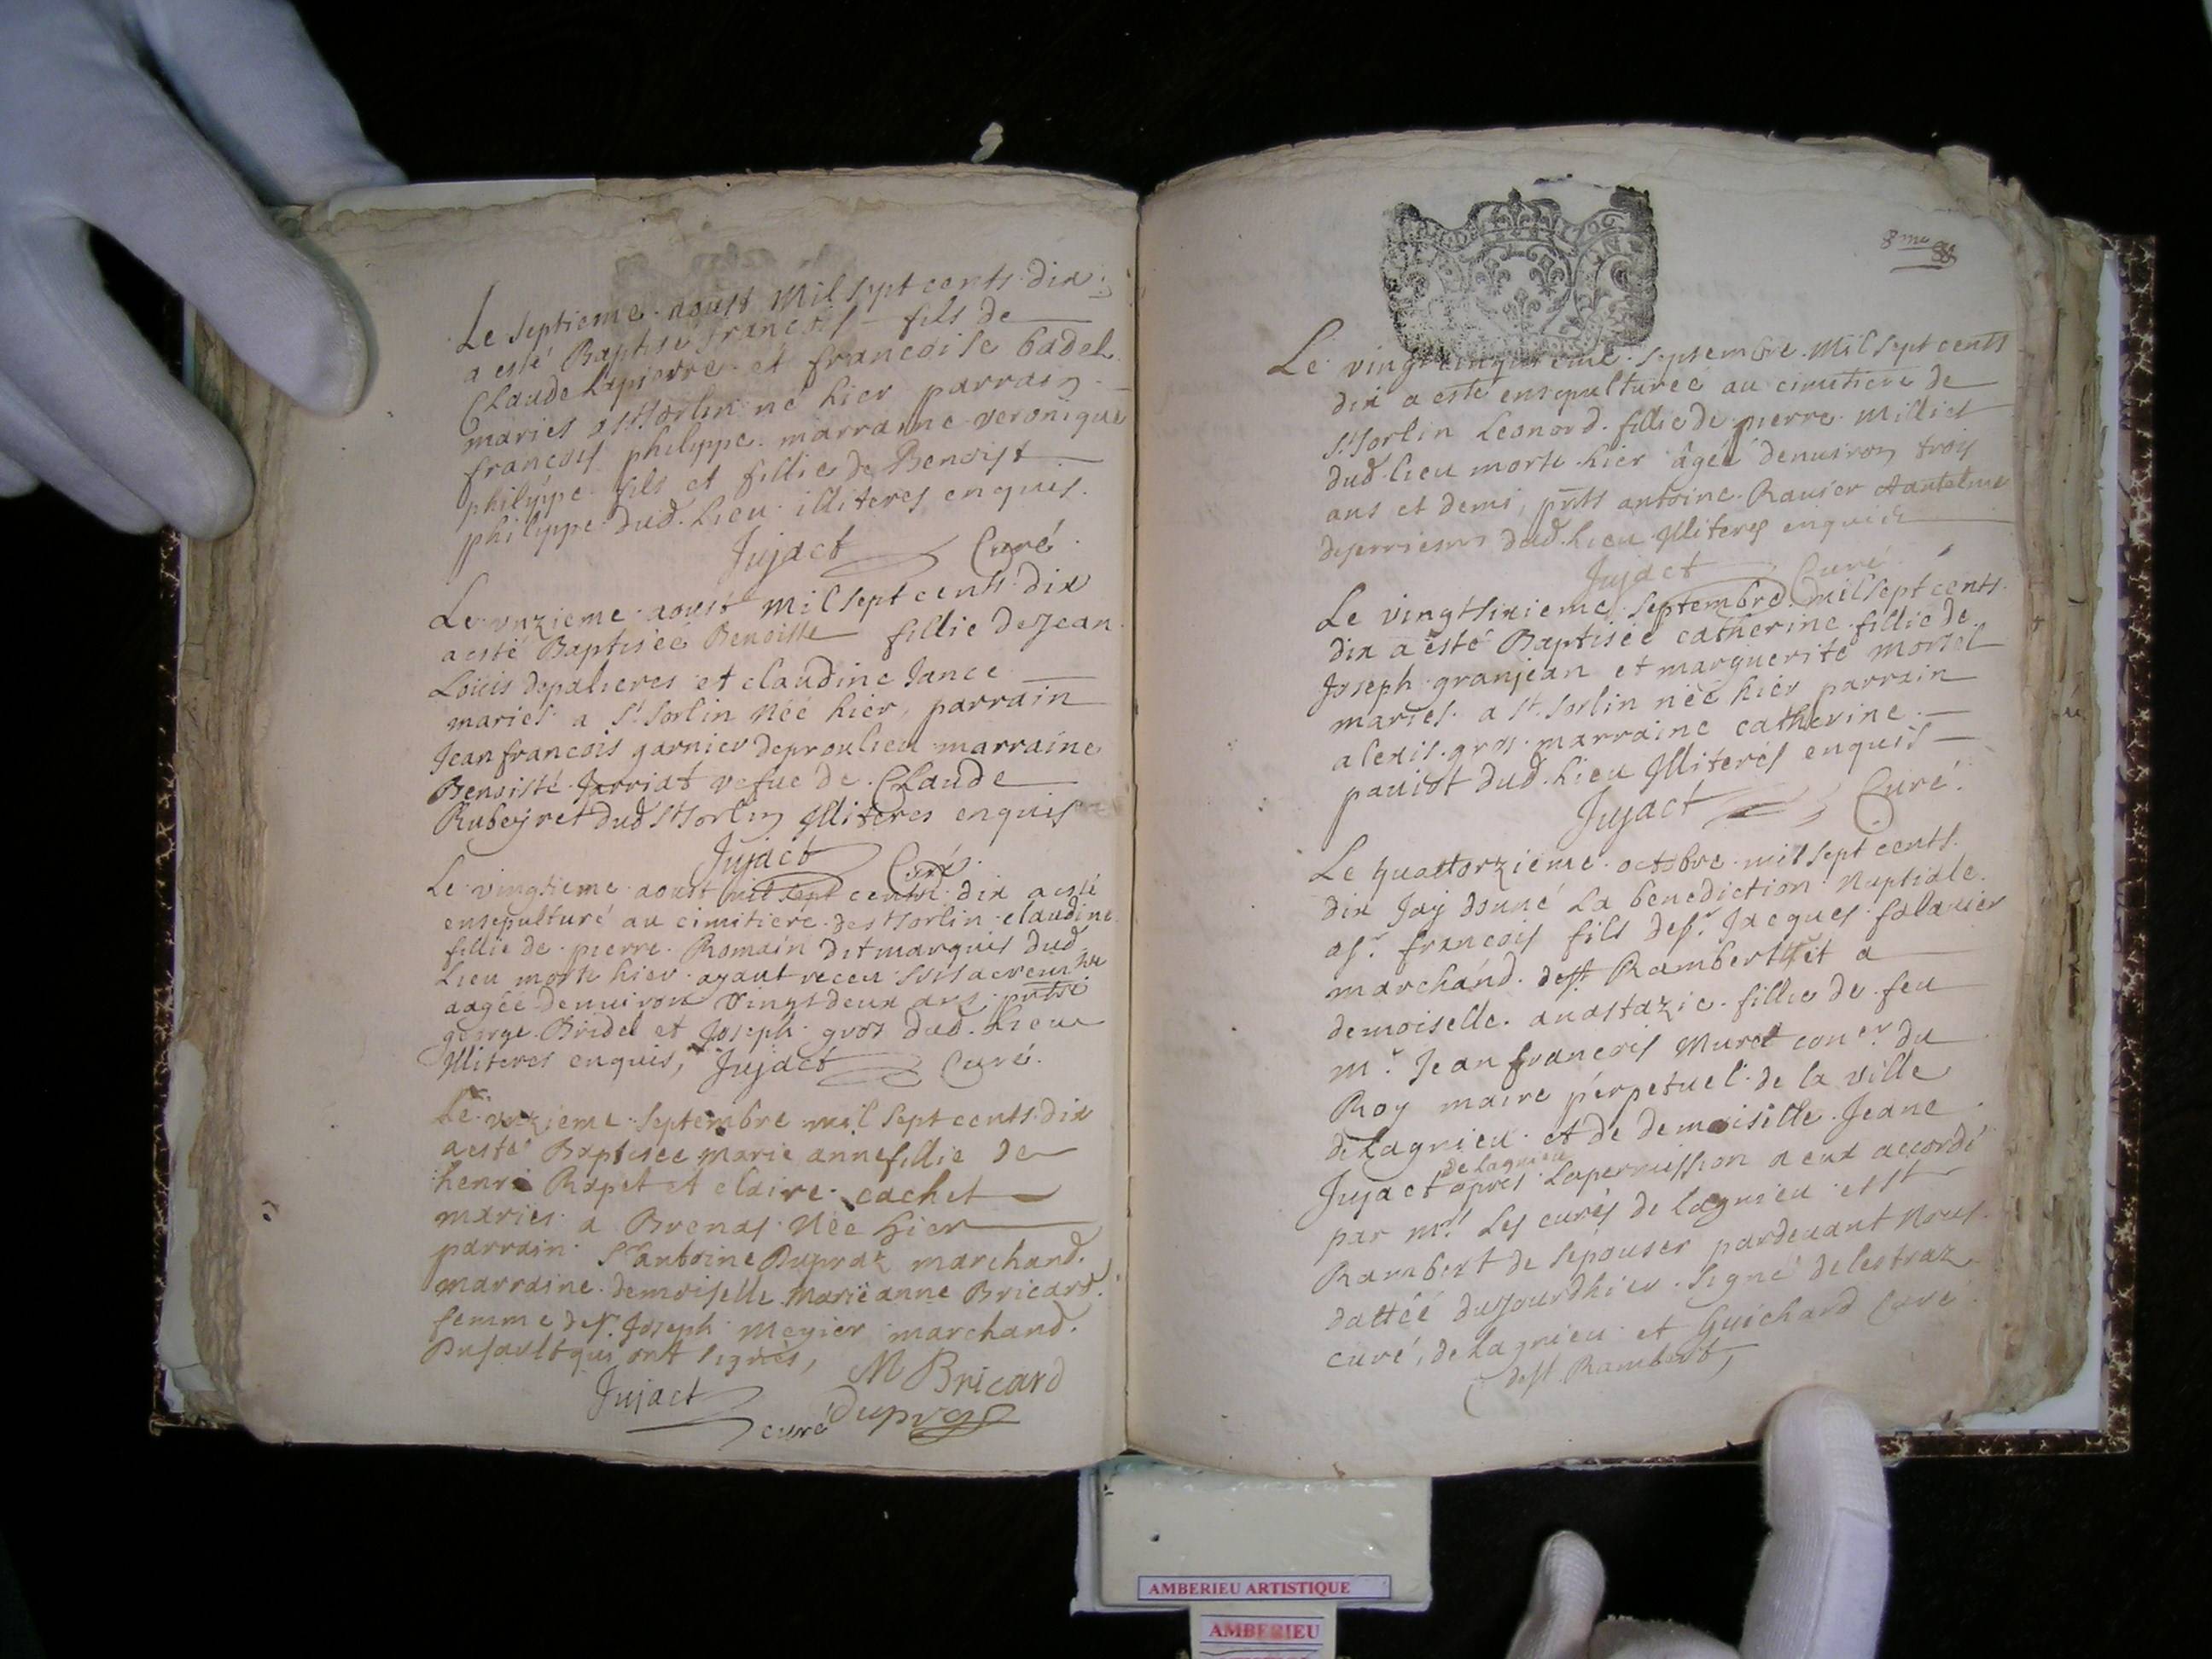 Le septieme aoust Mil sept cents dix
a esté Baptisé francois fils de
Claude Lapierre et francoise badel
maries a st sorlin né hier parrain
francois philippe marraine veronique
philippe fils et fillie de Benoist
philippe dud. Lieu illiteres enquis.
Jujact Curé
Le unzieme aoust mil sept cents dix
a esté Baptisée Benoiste fillie de Jean
Loüis depalieres et claudine Jance
mariés a st sorlin Née hier, parrain
Jean francois garnier de proulieu marraine
Benoisté Jarriat vefue de Claude
Rubeyret dud st sorlin Illiteres enquis
Jujact Curé.
Le vingtieme aoust mil sept cents dix a esté
ensepulturé au cimitiere de st sorlin claudine
fillie de pierre Romain dit marquis dud.
Lieu morte hier ayant receu
aagée denuiron vingt deux ans, pnts
george Bridel et Joseph gros dud. Lieu
Illiteres enquis, Jujact Curé.
Le unzieme Septembre mil sept cents dix
a esté Baptisée marie anne fillie de
henri Rapet et claire cachet
mariés a Brenas Née hier
parrain Sr antoine Dupraz marchand.
marraine demoiselle Marie anne Bricard.
femme de sr. Joseph Megier marchand.
Dusault qui ont signés,
M Bricard
Jujact curé Dupraz
8me
Le vingt cinquieme septembre Mil sept cents
dix a esté ensepulturée au cimetiere de
st sorlin Leonord fillie de pierre Milliet
dud. Lieu morte hier âgée denuiron trois
ans et demi, pnts antoine Rauier et antelme
deserrieres dud. Lieu Illiteres enquis
Jujact Curé
Le vingt sixieme Septembre mil sept cents
dix a esté Baptisée catherine fillie de
Joseph granjean et marguerite morel
mariés a st. sorlin née hier parrain
alexis gros marraine catherine
pauiot dud. Lieu Illiterés enquis
Jujact Curé.
Le quattorzieme octobre mil sept cents
dix Jay donné La benediction Nuptiale
a sr. francois fils de sr. Jacques falauier
marchand de st Rambert et a
demoiselle anastazie fillie de feu
mr. Jean francois Muret coner. du
Roy maire perpetuel de la ville
de Lagnieu et de demoiselle Jeane
de Lagnieu
Jujact apres La permission a eux accordé
par mrs. Les curés de lagnieu et st
Rambert de sepouser pardeuant Nous
dattéé dujourdhier signé delestraz
curé de Lagnieu et Guichard Curé
de st Rambert,
AMBERIEU ARTISTIQUE
AMBERIEU